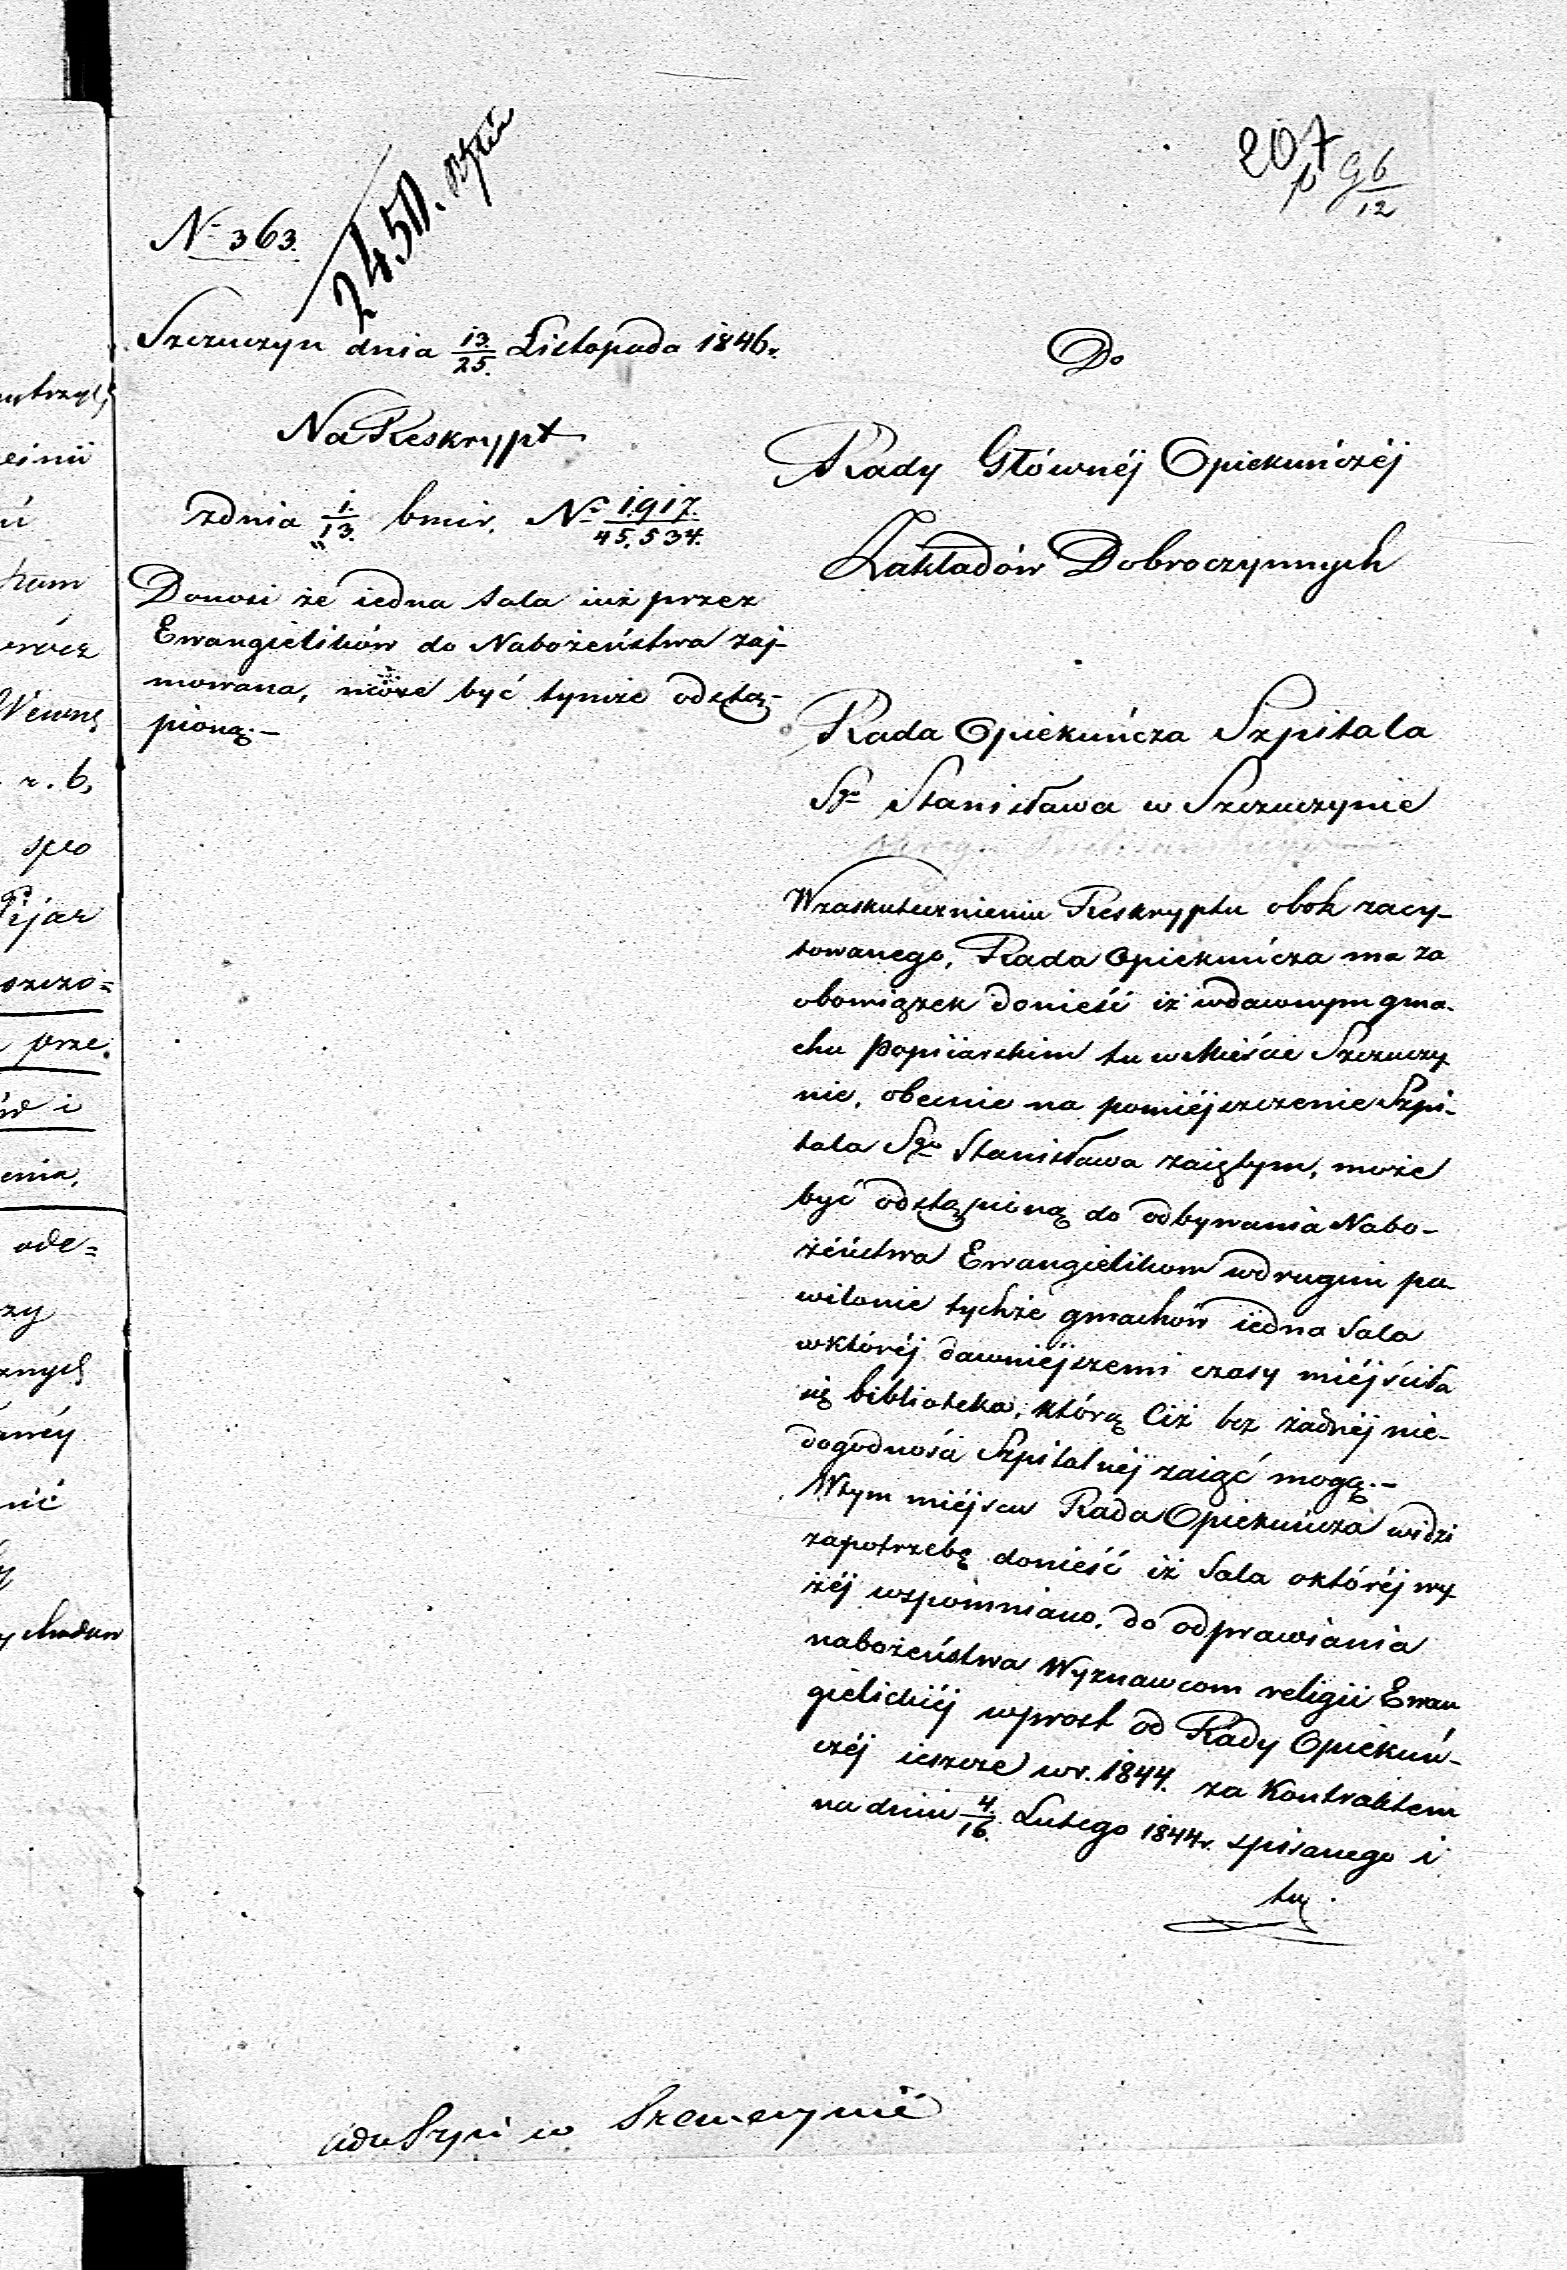 207
G 6/12
2450.
N 363.
Szczuczyn dnia 13/25. Listopada 1846r.
Na Reskrypt
zdnia 1./13. bmir. No 1917./45,534.
Donosi że iedna sala iuż przez
Ewangielików do Nabożeństwa zaj-
mowana, może być tymże odstą-
pioną.-
Do
Rady Głównéj Opiekuńczéj
Zakładów Dobroczynnych
Rada Opiekuńcza Szpitala
Sgo Stanisława w Szczuczynie
Wzaskutecznieniu Reskryptu obok zacy-
towanego, Rada Opiekuńcza ma za
obowiązek donieść iż wdawnym gma-
chu popiiarskim tu w Mieście Szczuczy
nie, obecnie na pomiéjszczenie Szpi-
tala Sgo Stanisława zaiętym, może
być odstąpioną do odbywania Nabo-
żeństwa Ewangielikom wdrugim pa-
wilonie tychże gmachów iedna Sala
wktóréj dawniéjszemi czasy miéjściła
się biblioteka, którą Ciż bez żadnéj nie-
dogodności Szpitalnéj zaiąć mogą.-
Wtym miéjscu Rada Opiekuńcza widzi
zapotrzebę donieść iż Sala októréj wy
żéj wspomniano, do odprawiania
nabożeństwa Wyznawcom religii Ewan
gielickiéj wprost od Rady Opiekuń-
czéj ieszcze wr. 1844. za Kontraktem
na dniu 4./16. Lutego 1844r. spisanego i
tu
w Szczuczynie